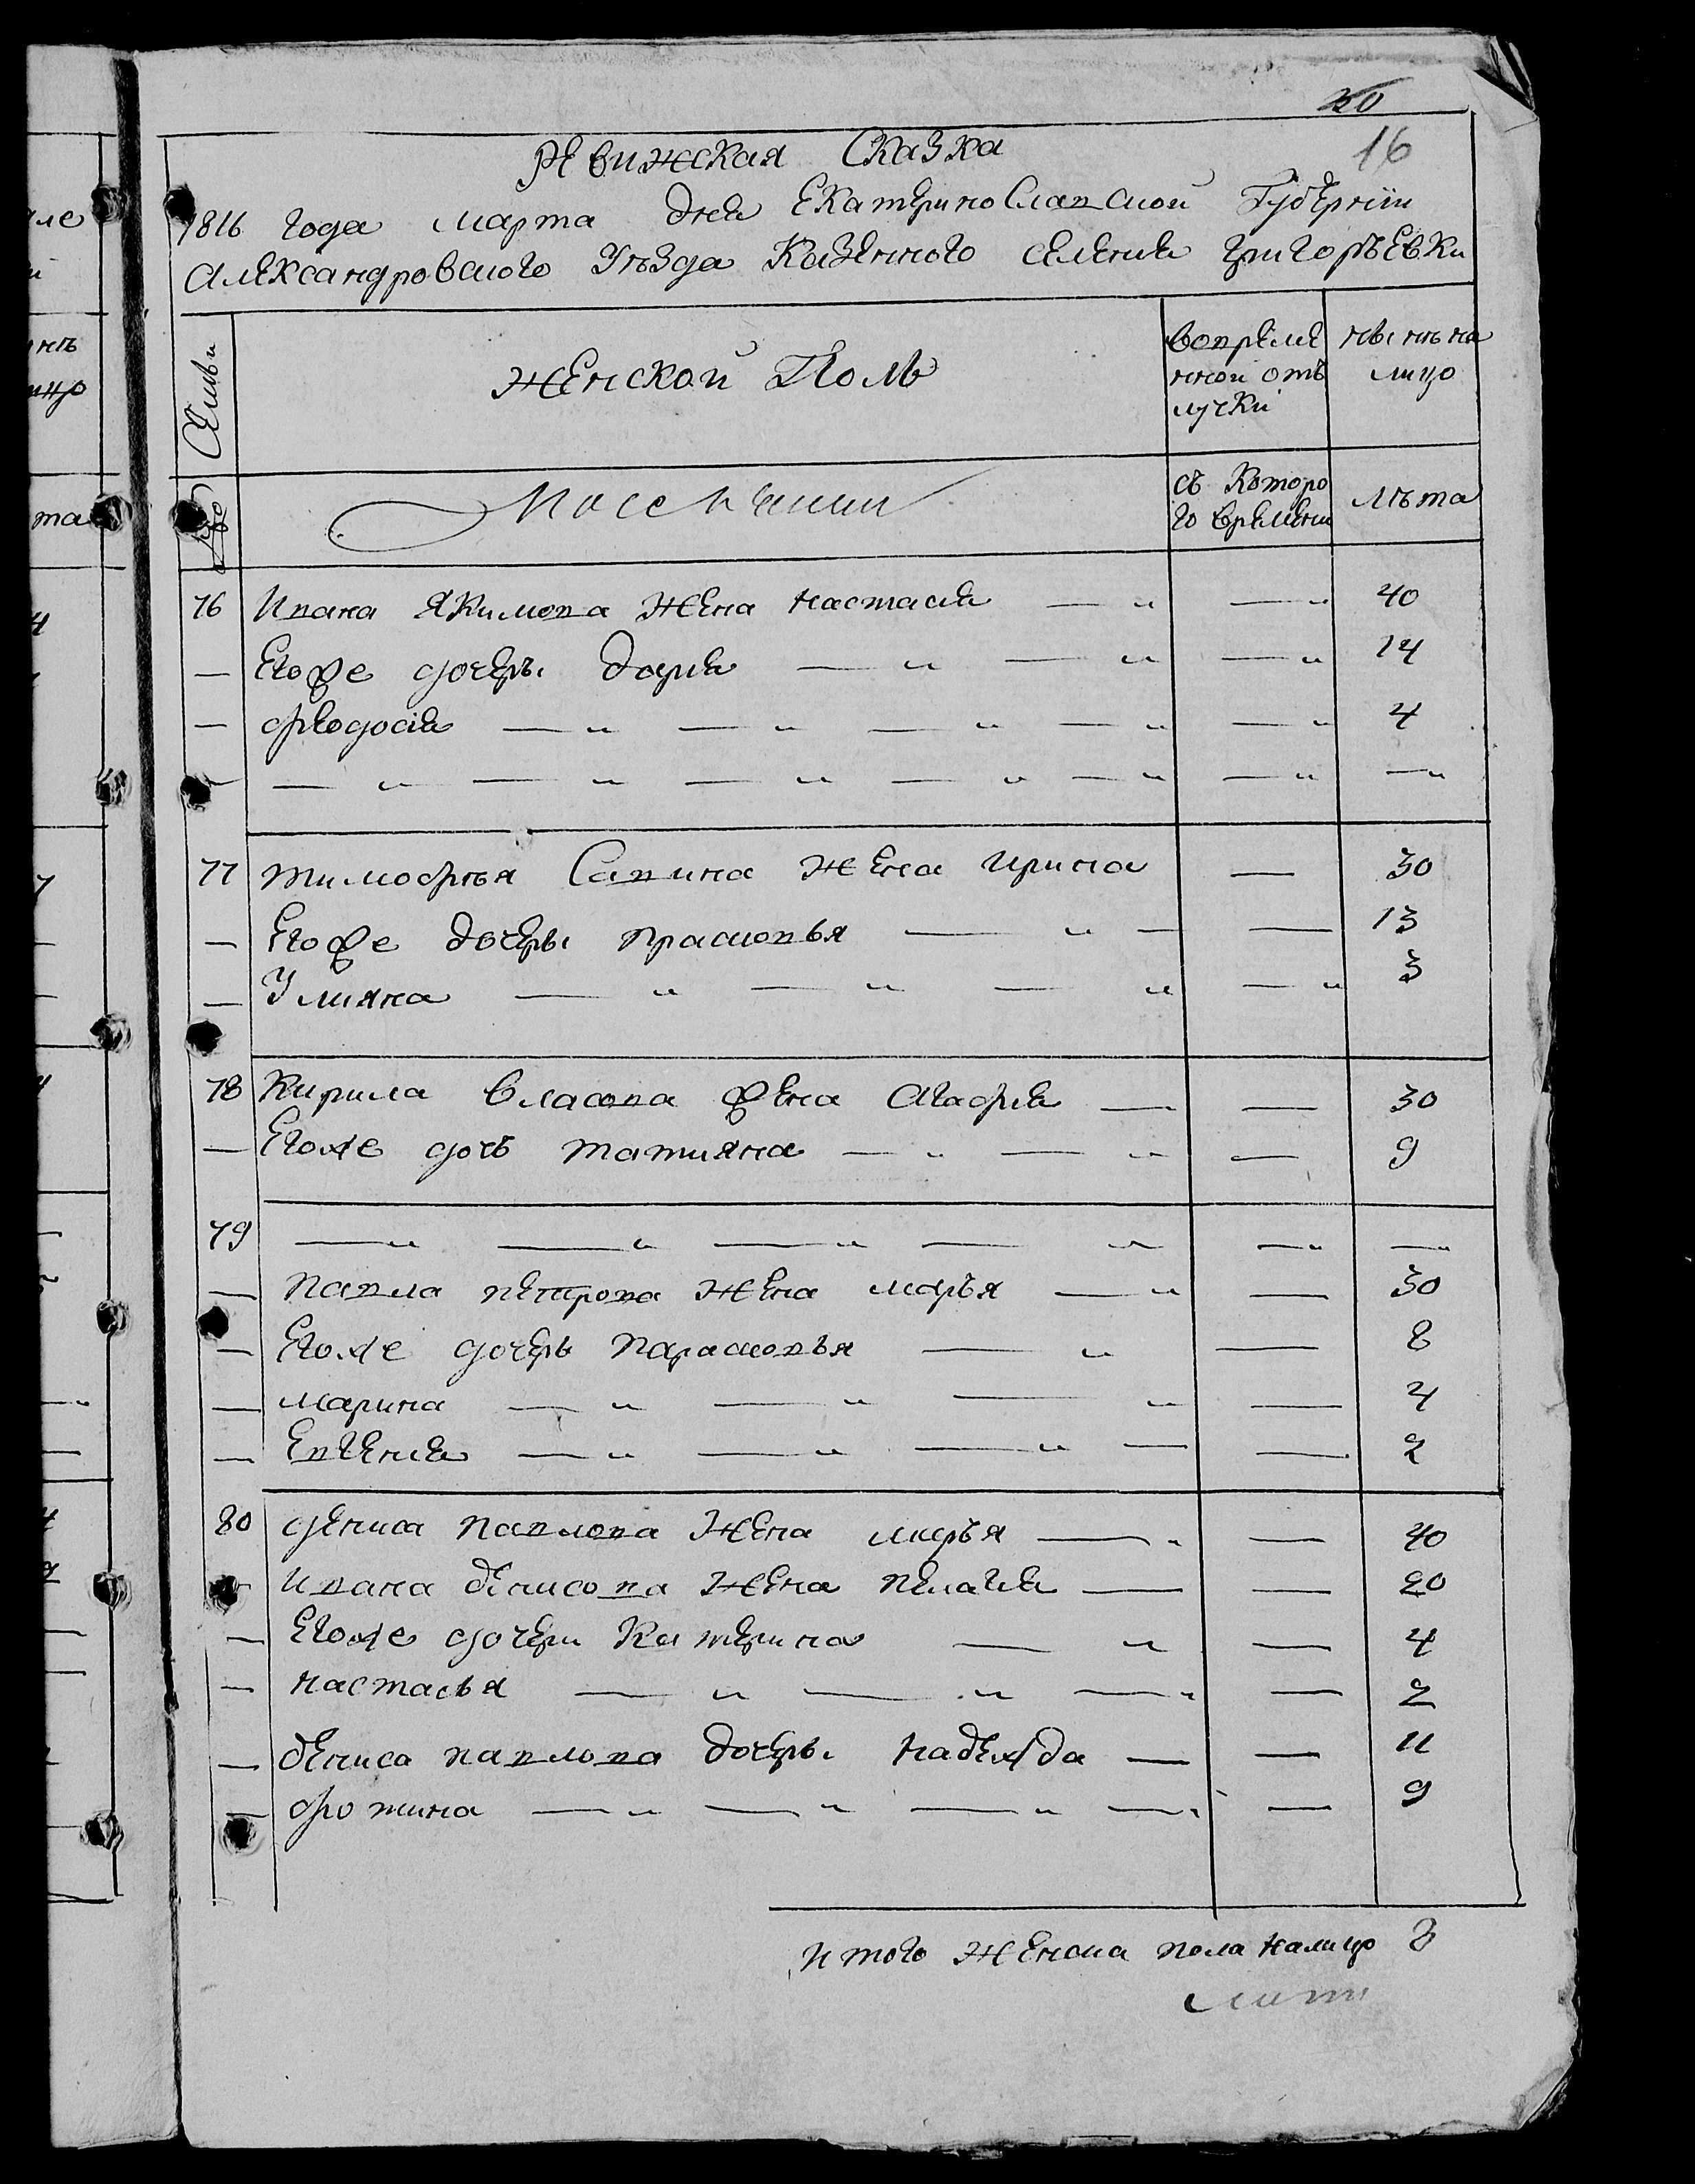 30
16
Ревижская Сказка
1816 года марта дня Екатеринославской Губернiи
Александровского Уезда Казенного селения Григорьевки
Семьи
Женской Полъ
вовреме
нной отъ
лучки
ныне на
лицо
съ Которо
го времени
лета
76 Ивана Якимова Жена настасия — „ — „ 40
— Егоже дочерь дария — „ — „ — „ 14
— феодосия — „ — „ — „ — „ — „ 4
— „ — „ — „ — „ — „ — „ — „
77 тимофея Савина Жена ирина — 30
— Егоже дочерь прасковья — „ — — 13
— Улияна — „ — „ — „ — „ 3
78 Кирила власова жена Агафия — — 30
— Егоже дочь татияна — „ — „ — 9
79 — „ — „ — „ — „ — „ — „
— павла петрова Жена марья — „ — 30
— Егоже дочерь парасковья — „ — 8
— марина — „ — „ — „ — 4
— Евгения — „ — „ — „ — — 2
80 дениса павлова Жена марья — „ — 40
— ивана денисова Жена пелагия — — 20
— Егоже дочери Катерина — „ — 4
— настасья — „ — „ — „ — 2
— дениса павлова дочерь надежда — — 11
— фотина — „ — „ — „ — „ — 9
итого Женска пола налицо 8